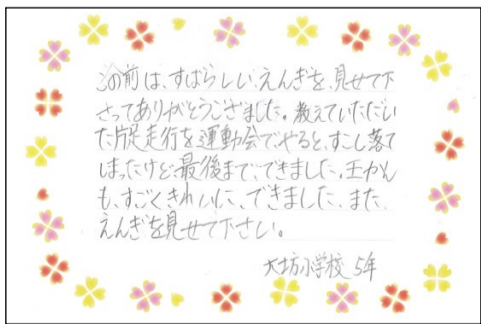 この前は、すばらしいえんぎを、見せて下
さってありがとうございました。教えていただい
た片足走行を運動会でやると、すこし落て
しまったけど最後まで、できました。王かん
も、すごくきれいに、できました、また、
えんぎを見せて下さい。
大坊小学校 5年